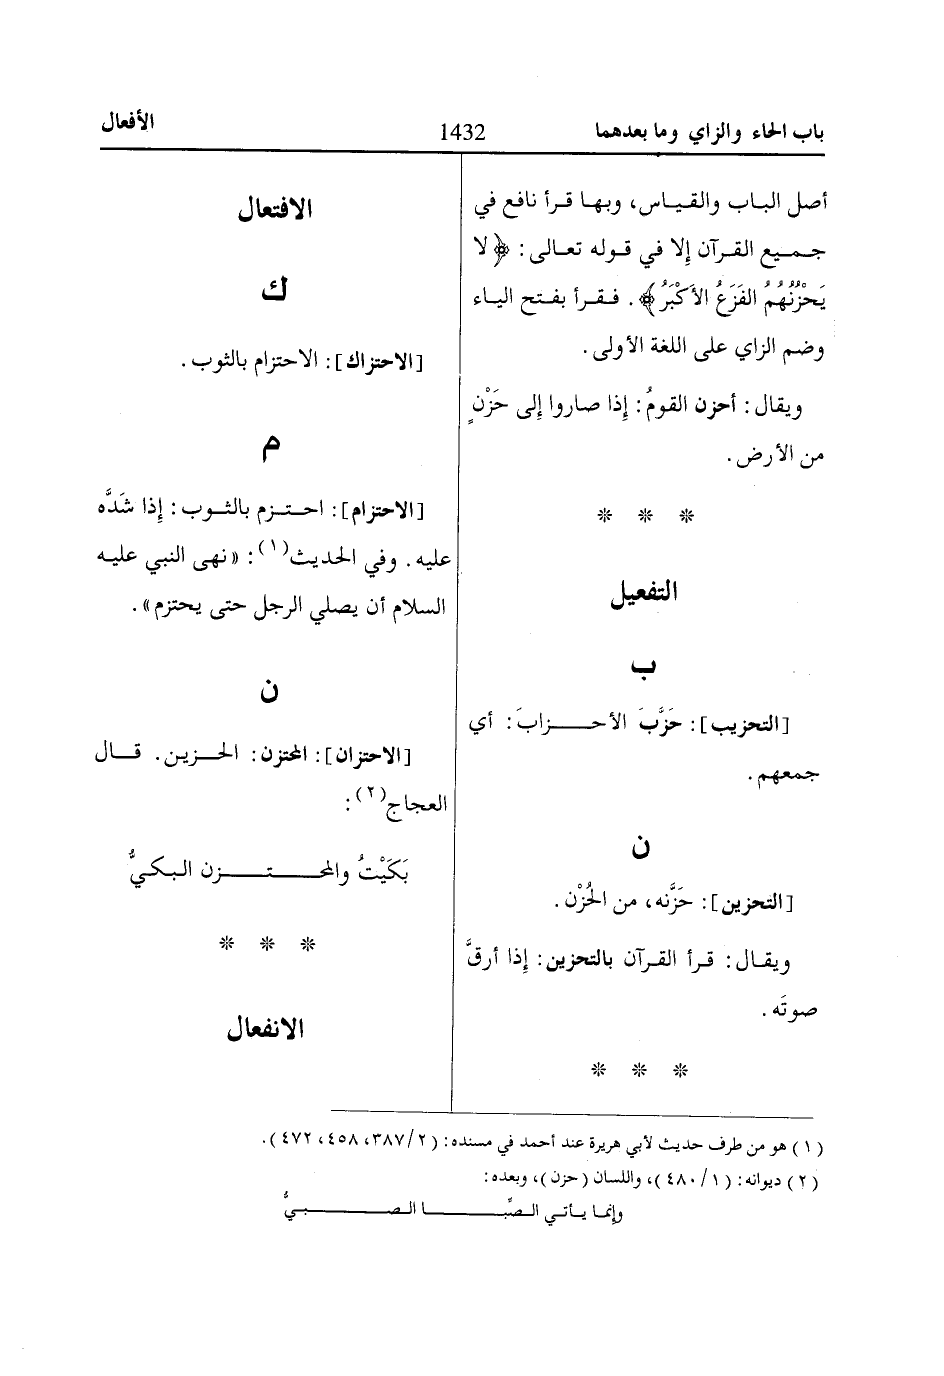 باب الحاء والزاي وما بعدهما
1432
الأفعال
أصل الباب والقياس، وبها قرأ نافع في
جميع القرآن إلا في قوله تعالى: ﴿لا
يَحْزُنُهُمُ الفَزَعُ الأَكْبَرُ﴾. فقرأ بفتح الياء
وضم الزاي على اللغة الأولى.
ويقال: أحزن القومُ: إذا صاروا إلى حَزْنٍ
من الأرض.
* * *
التفعيل
ب
[التحزيب]: حَزَّبَ الأحزابَ: أي
جمعهم.
ن
[التحزين]: حَزَّنه، من الحُزْن.
ويقال: قرأ القرآن بالتحزين: إذا أرقَّ
صوتَه.
* * *
الافتعال
ك
[الاحتزاك]: الاحتزام بالثوب.
م
[الاحتزام]: احتزم بالثوب: إذا شَدَّه
عليه. وفي الحديث(١): «نهى النبي عليه
السلام أن يصلي الرجل حتى يحتزم».
ن
[الاحتزان]: المحتزن: الحزين. قال
العجاج(٢):
بَكَيْتُ والمحتزن البكيُّ
* * *
الانفعال
(١) هو من طرف حديث لأبي هريرة عند أحمد في مسنده: (٣٨٧/٢، ٤٥٨، ٤٧٢).
(٢) ديوانه: (٤٨٠/١)، واللسان (حزن)، وبعده:
وإنما يأتي الصِّبا الصبيُّ